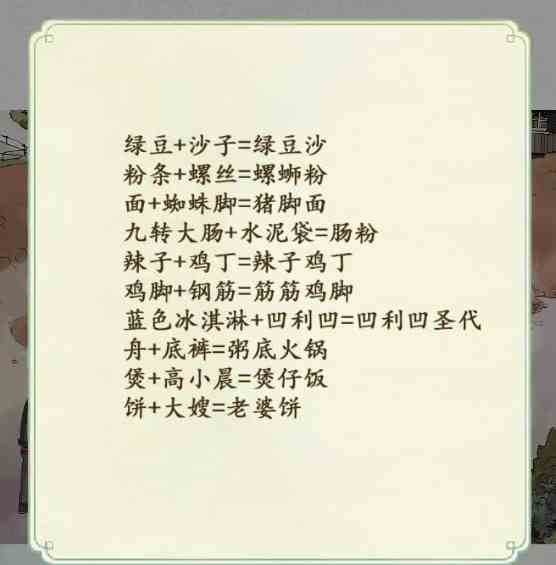 绿豆+沙子=绿豆沙
粉条+螺丝=螺蛳粉
面+蜘蛛脚=猪脚面
九转大肠+水泥袋=肠粉
辣子+鸡丁=辣子鸡丁
鸡脚+钢筋=筋筋鸡脚
蓝色冰淇淋+凹利凹=凹利凹圣代
舟+底裤=粥底火锅
煲+高小晨=煲仔饭
饼+大嫂=老婆饼